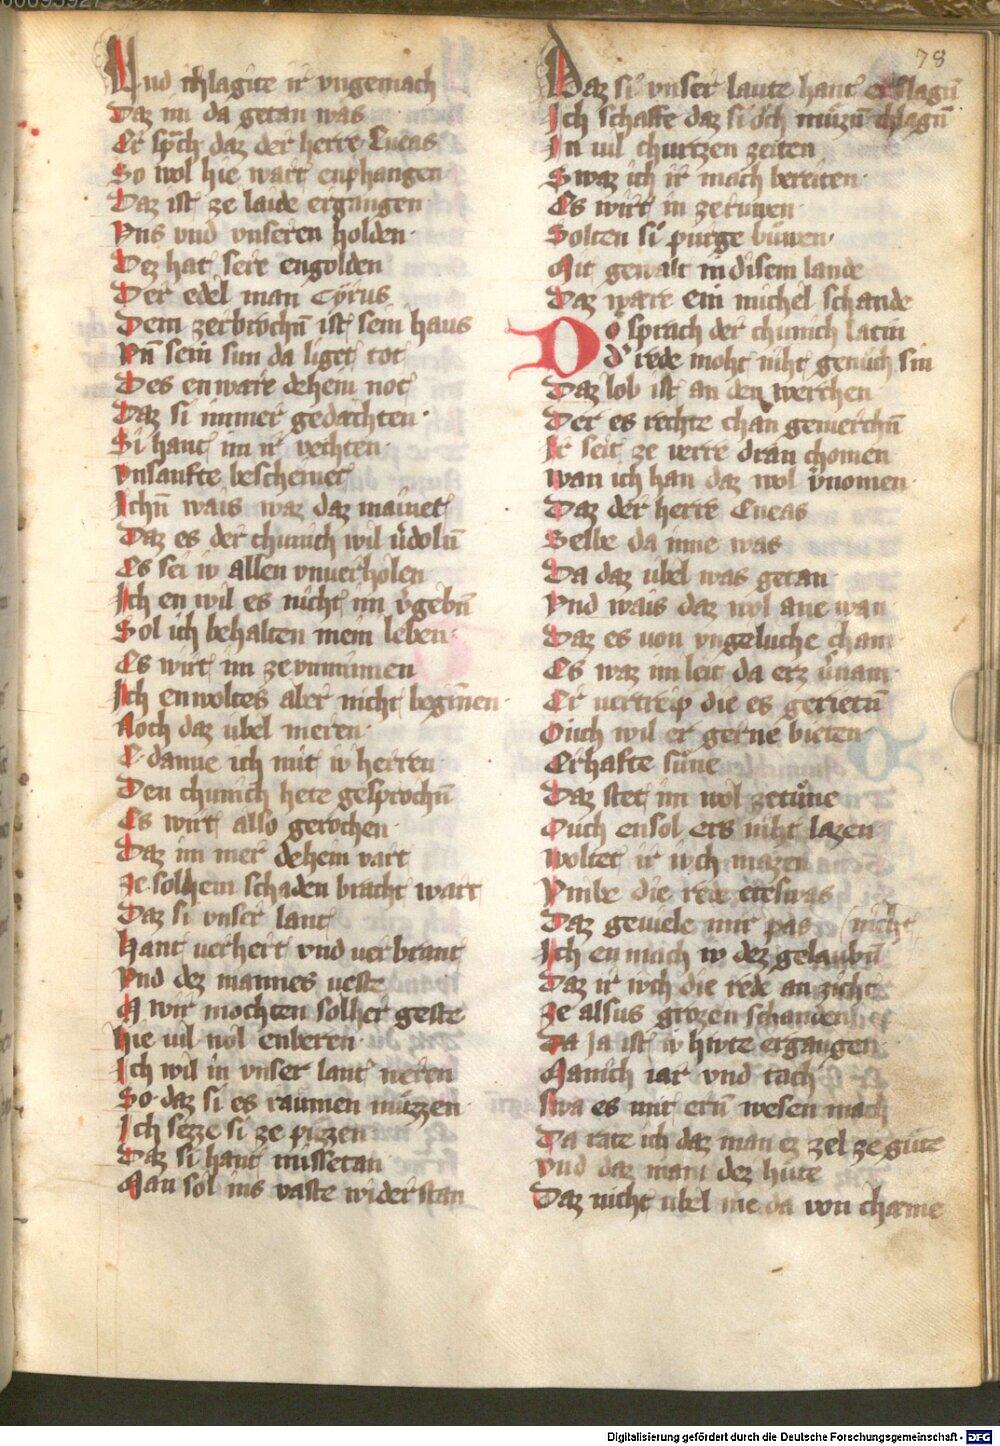 Vnd chlagite ir vngemach
Daz im da getan was
Er sprach daz der herre Eneas
So wol hie wart enphangen
Daz ist ze laide ergangen
Vns vnd vnseren holden
Dez hat sere engolden
Der edel man Cyrus
Dem zerbrochn̄ ist sein haus
Vn̄ sein sun da liget tot
Des enware dehein not
Daz si immer gedachten
Si hant im ir vechten
Vnsanfte bescheinet
Ichn̄ wais waz daz mainet
Daz es der chunich wil v̓doln̄
Es sei iv allen vnuerholen
Ich en wil es nicht im v̓gebn̄
Sol ich behalten mein leben
Es wirt im ze vnminnen
Ich enwoltes aber nicht begiñen
Noch daz ubel meren
E danne ich mit iv herren
Den chunich hete gesprochn̄
Es wirt also gerochen
Daz im mer dehein vart
Ze solhem schaden bracht wart
Daz si vnser lant
Hant verhert vnd verbrant
Vnd dez mannes veste
wir mochten solher geste
Hie vil wol enberen
Ich wil in vnser lant weren
So daz si es raumen muzzen
Ich sezze si ze puzzen
Daz si hant missetan
Man sol ins vaste widerstan
78
Daz si vnser laute hant erslagn̄
Ich schaffe daz si och muzzn̄ chlagn̄
In vil churtzen zeiten
Swaz ich ir mach bereiten
Es wirt in ze ruwen
Solten si purge buwen
Mit gewalt in disem lande
Daz ware ein michel schande
Do sprach der chunich latin
D̓ rede moht niht genuch sin
Daz lob ist an den werchen
Der es rechte chan gemerchn̄
Ir seit ze verre dran chomen
wan ich han daz wol v̓nomen
Daz der herre Eneas
Selbe da inne was
Da daz ubel was getan
Vnd wais daz wol ane wan
Daz es von vngeluche cham
Es waz im leit da erz v̓nam
Er vertreip die es gerietn̄
Ouch wil er gerne bieten
Erhafte sune
Daz stet im wol ze tune
Ouch ensol ers niht lazen
woltet ir iuch mazen
Vmbe die rede eteswas
Daz geuiele mir pas
nicht
Ich en mach iv dez gelaubn̄
Daz ir iuch die rede an zicht
Ze alsus grozen schanden
Da ia ist iv hiute ergangen
Manich iar vnd tach
swa es mit ern̄ wesen mach
Da rate ich daz man ez zel ze gute
Vnd daz mans dez hute
Daz nicht ubel me da von chæme
Digitalisierung gefördert durch die Deutsche Forschungsgemeinschaft - DFG